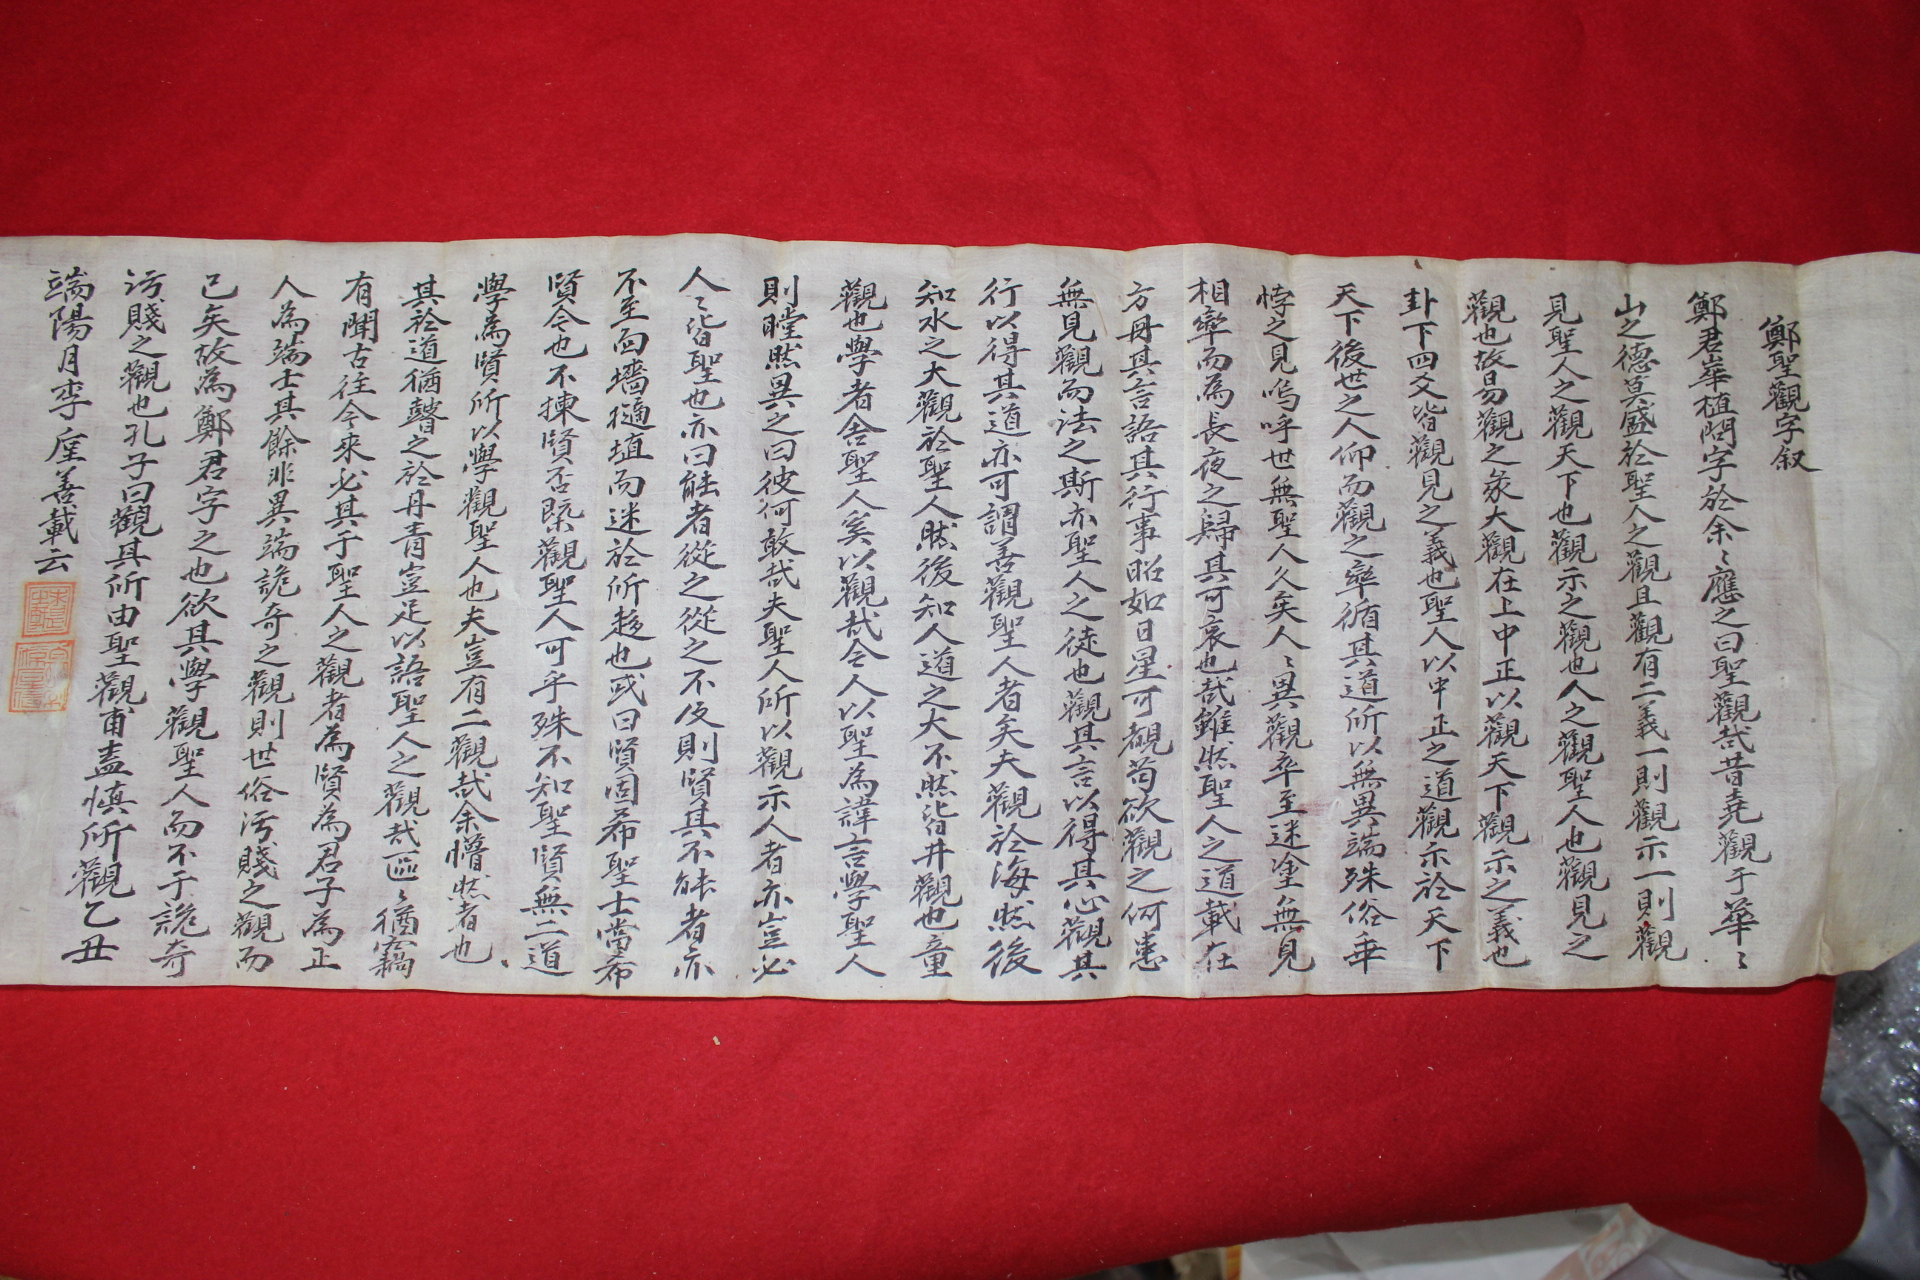 鄭聖觀字叙
鄭君崋植問字於余〻應之曰聖觀哉昔堯觀于華〻
山之德莫盛於聖人之觀且觀有二義一則觀示一則觀
見聖人之觀天下也觀示之觀也人之觀聖人也觀見之
觀也故易觀之彖大觀在上中正以觀天下觀示之義也
卦下四爻皆觀見之義也聖人以中正之道觀示於天下
天下後世之人仰而觀之率循其道所以無異端殊俗乖
悖之見嗚呼世無聖人久矣人〻異觀卒至迷塗無見
相率而為長夜之歸其可哀也哉雖然聖人之道載在
方冊其言語其行事昭如日星可覩苟欲觀之何患
無見觀而法之斯亦聖人之徒也觀其言以得其心觀其
行以得其道亦可謂善觀聖人者矣夫觀於海然後
知水之大觀於聖人然後知人道之大不然皆井觀也童
觀也學者舍聖人奚以觀哉今人以聖為諱言學聖人
則瞠然異之曰彼何敢哉夫聖人所以觀示人者亦豈必
人〻皆聖也亦曰能者從之從之不及則賢其不能者亦
不至面墻擿埴而迷於所趍也或曰賢固希聖士當希
賢今也不揀賢否槩觀聖人可乎殊不知聖賢無二道
學為賢所以學觀聖人也夫豈有二觀哉余懵然者也
其於道猶瞽之於丹青豈足以語聖人之觀哉區〻猶竊
有聞古往今來必其于聖人之觀者為賢為君子為正
人為端士其餘非異端詭奇之觀則世俗汚賤之觀而
已矣故為鄭君字之也欲其學觀聖人而不于詭奇
汚賤之觀也孔子曰觀其所由聖觀甫盍愼所觀乙丑
端陽月李崖善載云